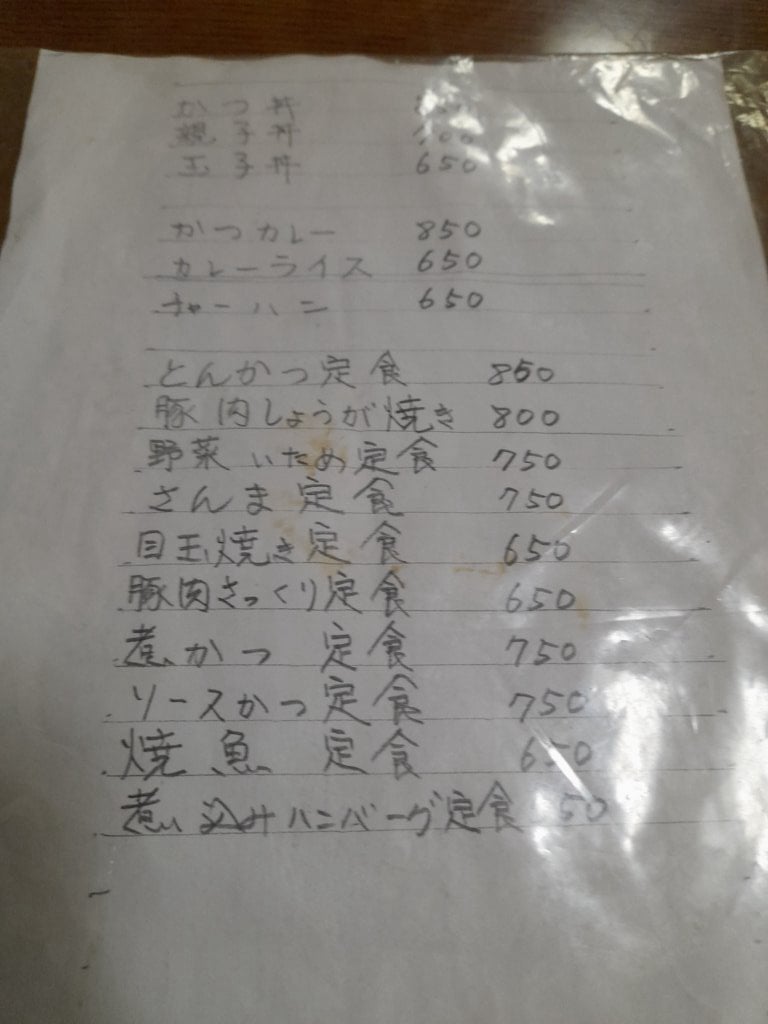 かつ丼
親子丼 700
玉子丼 650
かつカレー 850
カレーライス 650
チャーハン 650
とんかつ定食 850
豚肉しょうが焼き 800
野菜いため定食 750
さんま定食 750
目玉焼き定食 650
豚肉さっくり定食 650
煮かつ定食 750
ソースかつ定食 750
焼魚定食 650
煮込みハンバーグ定食 50